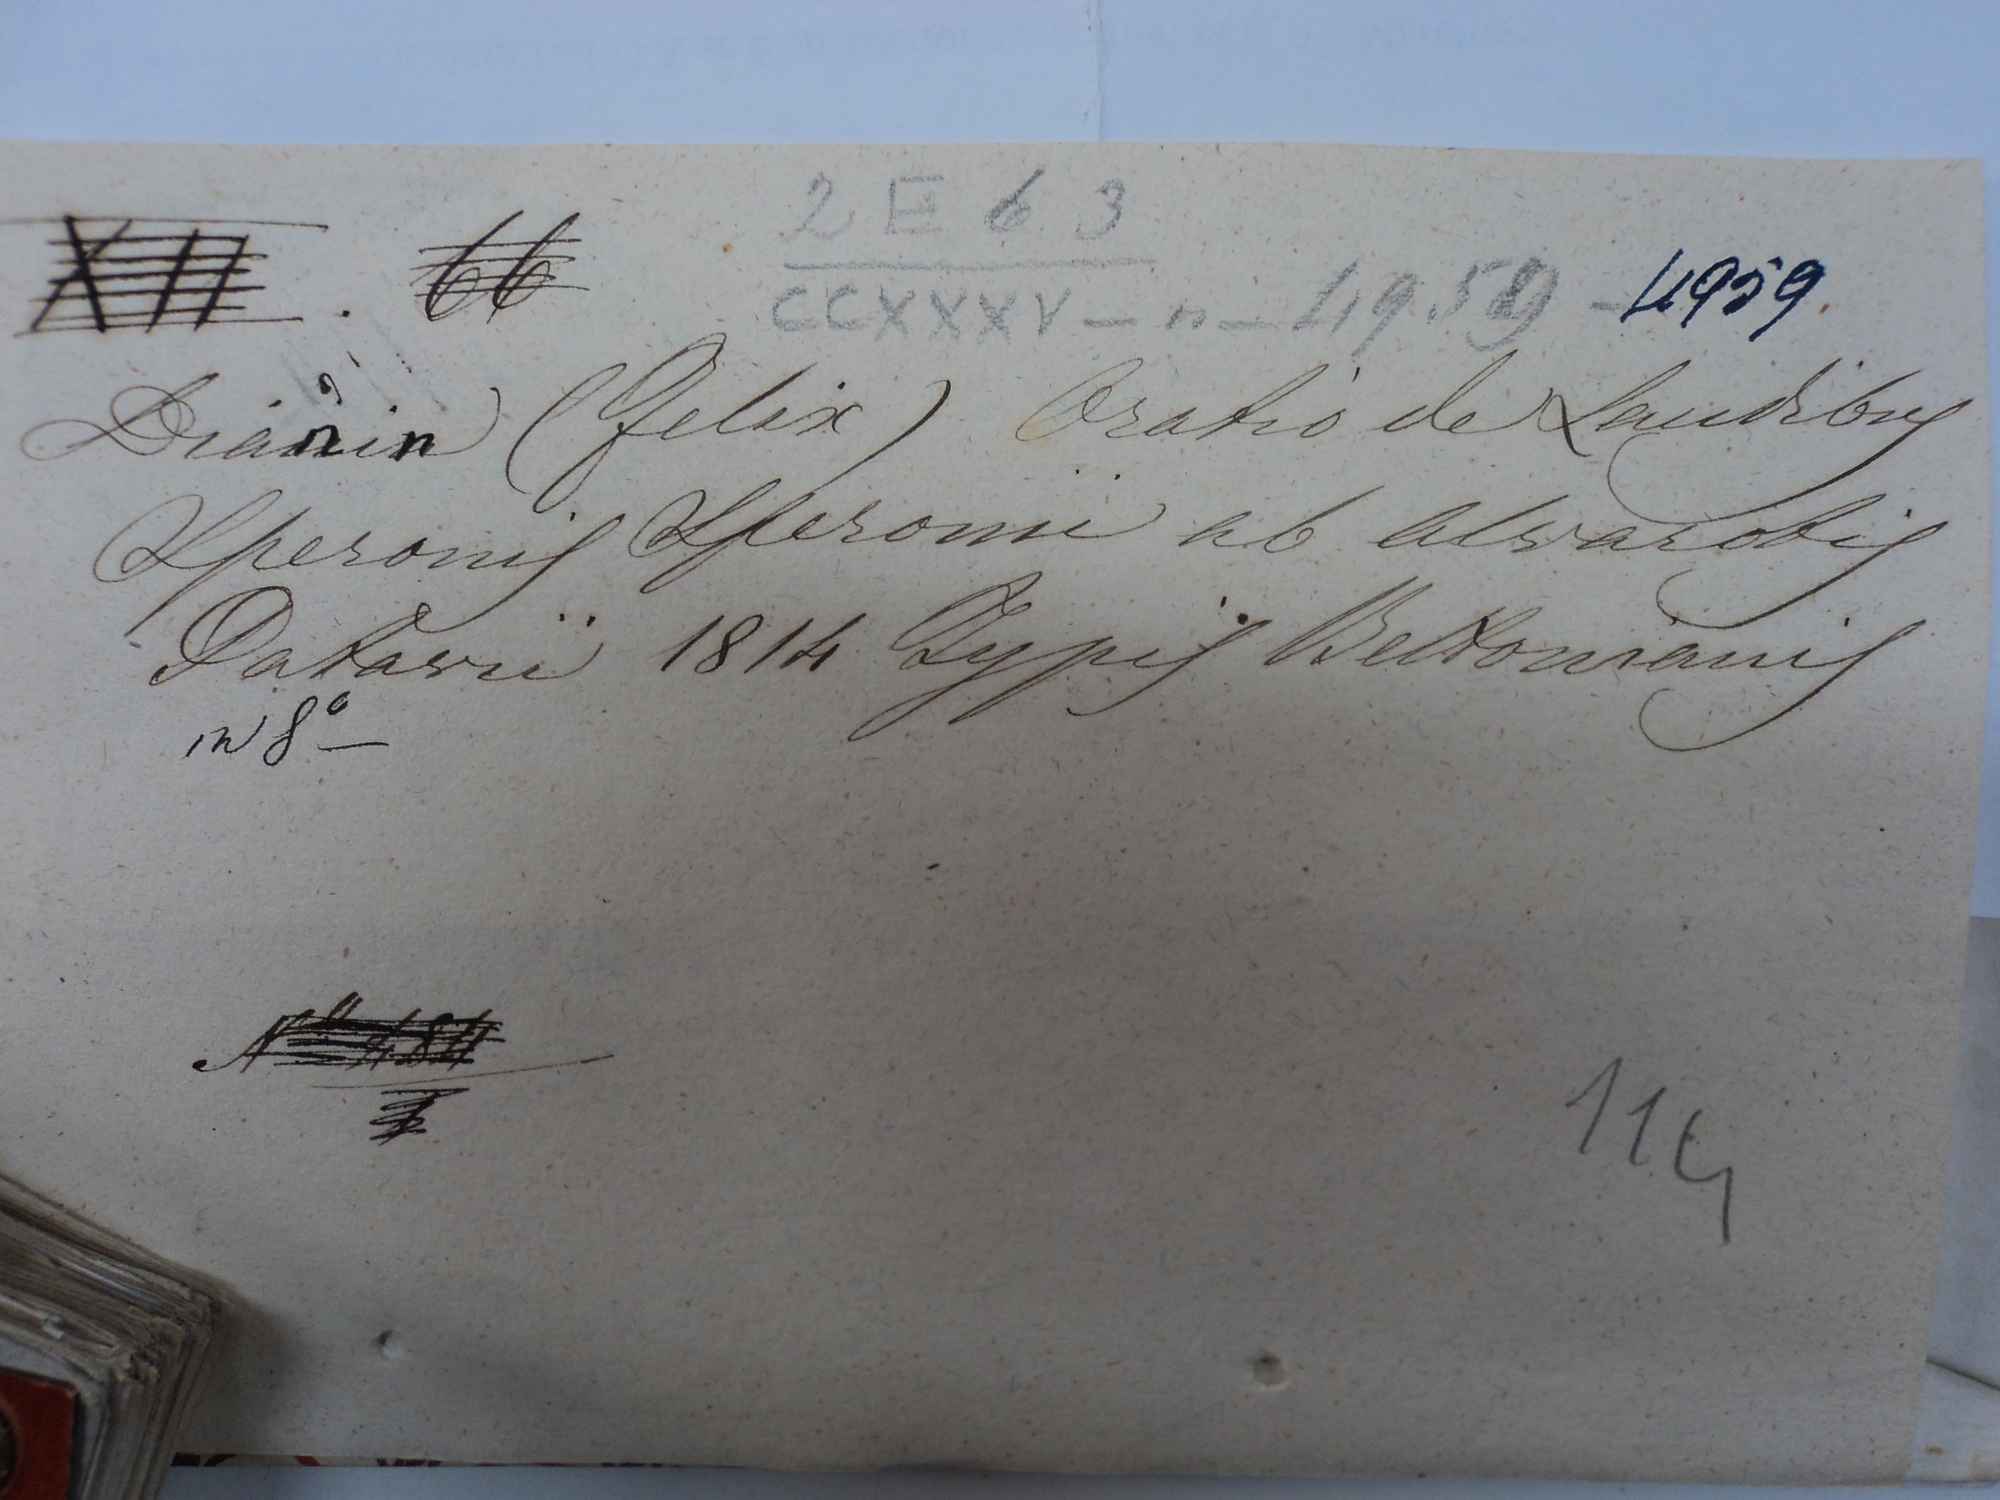 2 E 6 3
XII . 66
CCXXXV - n - 49.59 - 4959.
Dianin (Felix) Oratio de Laudibus
Speronis Speronii ab Alvarotis
Patavii 1814 Typis Bettonianis
in 8°
N° 484
114